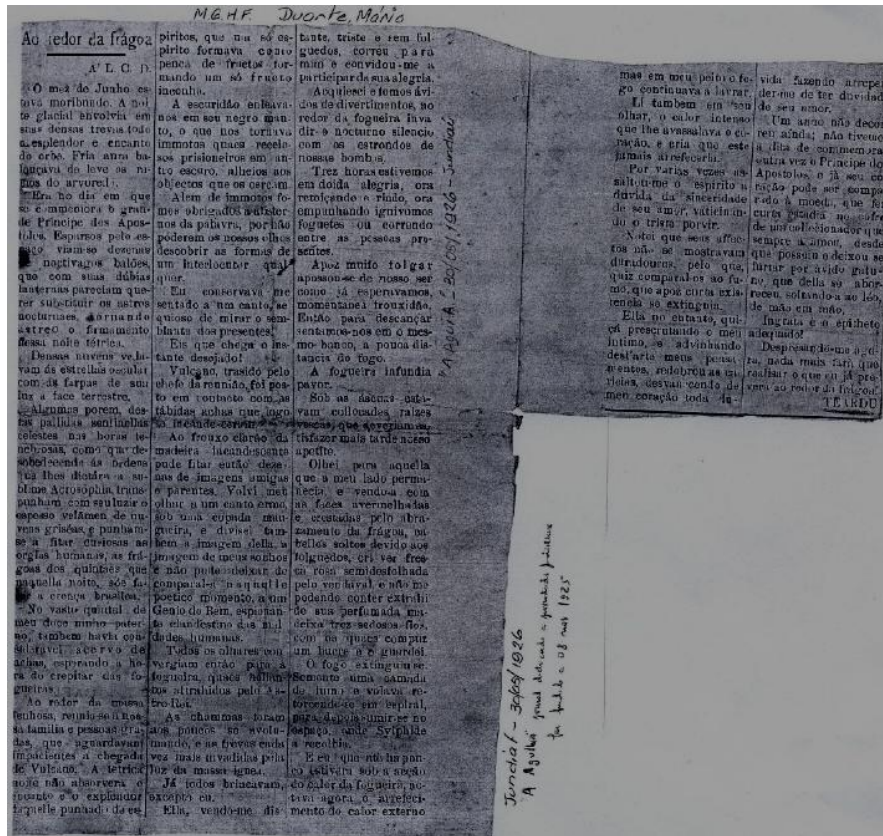 M.G.H.F. Duarte, Mário
Ao redor da frágoa
A' L. C. D.
O mez de Junho es-
tava moribundo. A noi-
te glacial envolvia em
suas densas trevas todo
o esplendor e encanto
do orbe. Fria aura ba-
louçava de leve os ra-
mos do arvoredo.
Era no dia em que
se commemora o gran-
de Principe dos Apos-
tolos. Esparsos pelo es-
paço viam-se dezenas
de noctivagos balões,
que com suas dubias
lanternas pareciam que-
rer substituir os astros
nocturnaes, tornando
astreo o firmamento
dessa noite tétrica.
Densas nuvens vela-
vam ás estrellas oscular
com as farpas de sua
luz a face terrestre.
Algumas porem, des-
tas pallidas sentinellas
celestes nas horas te-
nebrosas, como que de-
sobedecendo ás ordens
que lhes dictára a su-
blime Acrosophia, trans-
punham com seu luzir o
espesso velámen de nu-
vens griséas, e punham-
se a fitar curiosas as
orgias humanas, as frá-
goas dos quintaes que
naquella noite, sóe fa-
zer a crença brasilea.
No vasto quintal de
meu doce ninho pater-
no, tambem havia con-
sideravel acervo de
achas, esperando a ho-
ra do crepitar das fo-
gueiras.
Ao redor da nossa
lenhosa, reuniu-se a nos-
sa familia e pessoas gra-
das, que aguardavam
impacientes a chegada
de Vulcano. A tétrica
noite não absorvera o
encanto e o explendor
daquelle punhado de es-
piritos, que num só es-
pirito formava como
penca de fructos for-
mando um só fructo
inconha.
A escuridão enleava-
nos em seu negro man-
to, o que nos tornava
immotos quaes recelo-
sos prisioneiros em an-
tro escuro, alheios aos
objectos que os cercam.
Alem de immotos fo-
mos obrigados a abster-
nos da palavra, por não
poderem os nossos olhos
descobrir as formas de
um interlocutor qual-
quer.
Eu conservava-me
sentado a um canto, se-
quioso de mirar o sem-
blante dos presentes.
Eis que chega o ins-
tante desejado!
Vulcano, trasido pelo
chefe da reunião, foi pos-
to em contacto com as
tábidas achas que logo
se incande-ceram.
Ao frouxo clarão da
madeira incandescente
pude fitar então deze-
nas de imagens amigas
e parentes. Volvi meu
olhar a um canto ermo,
sob uma copada man-
gueira, e divisei tam-
bem a imagem della, a
imagem de meus sonhos
e não pude deixar de
comparal-a naquelle
poetico momento, a um
Genio do Bem, espionan-
te clandestino das mal-
dades humanas.
Todos os olhares con-
vergiam então para a
fogueira, quaes helian-
tos attrahidos pelo As-
tro Rei.
As chammas foram
aos poucos se avolu-
mando, e as trevas cada
vez mais invadidas pela
luz da massa ignea.
Já todos brincavam,
excepto eu.
Ella, vendo-me dis-
tante, triste e sem fol-
guedos, correu para
mim e convidou-me a
participar de sua alegria.
Acquiesci e fomos ávi-
dos de divertimentos, ao
redor da fogueira inva-
dir o nocturno silencio
com os estrondos de
nossas bombas.
Trez horas estivemos
em doida alegria, ora
retoiçando e rindo, ora
empunhando ignivomos
foguetes ou correndo
entre as pessoas pre-
sentes.
Apoz muito folgar
apossou-se de nosso ser
como já esperavamos,
momentanea frouxidão.
Então para descançar
sentamos-nos em o mes-
mo banco, a pouca dis-
tancia do fogo.
A fogueira infundia
pavor.
Sob as áscuas esta-
vam collocadas raizes
que deveriam sa-
tisfazer mais tarde nosso
apetite.
Olhei para aquella
que a meu lado perma-
necia, e vendo-a com
as faces avermelhadas
e crestadas pelo abra-
zamento da frágoa, ca-
bellos soltos devido aos
folguedos, cri ver fres-
ca rosa semidesfolhada
pelo vendaval, e não me
podendo conter extrahi
de sua perfumada ma-
deixa trez sedosos fios,
com os quaes compuz
um lucre e o guardei.
O fogo extinguiu-se.
Somente uma camada
de fumo e volava re-
torcendo-se em espiral,
para depois sumir-se no
espaço, onde Sylphide
a recolhia.
E eu que não ha pou-
co estivera sob a acção
do calor da fogueira, no-
tava agora o arrefeci-
mento do calor externo
mas em meu peito o fo-
go continuava a lavrar.
Li tambem em seu
olhar, o calor intenso
que lhe avassalava o co-
ração, e cria que este
jamais arrefeceria.
Por varias vezes as-
saltou-me o espirito a
duvida da sinceridade
de seu amor, vaticinan-
do o triste porvir.
Notei que seus affec-
tos não se mostravam
duradouros, pelo que,
quiz comparal-os ao fu-
mo, que apoz curta exis-
tencia se extinguiu.
Ella no entanto, qui-
çá prescrutando o meu
intimo, e advinhando
dest'arte meus pensa-
mentos, redobrou as ca-
ricias, desvanecendo de
meu coração toda du-
vida fazendo arrepen-
der-me de ter duvidado
de seu amor.
Um anno não decor-
reu ainda; não tivemos
a dita de commemorar
outra vez o Principe dos
Apostolos, e já seu co-
ração pode ser compa-
rado á moeda, que foi
curta guarida no cofre
de um colleccionador que
sempre a amou, desde
que possuiu e deixou se
furtar por avido gatu-
no, que della se abor-
receu, soltando-a ao léo,
de mão em mão.
Ingrata é o epitheto
adequado!
Despresando-me ago-
ra, nada mais fam que
realisar o que eu já pre-
vera ao redor da frágoa!
TEARDU
"A Agulha" - 30/05/1926 - Jundiaí
Jundiaí - 30/05/1926
A Agulha jornal dedicado a
foi fundado a 08 1925